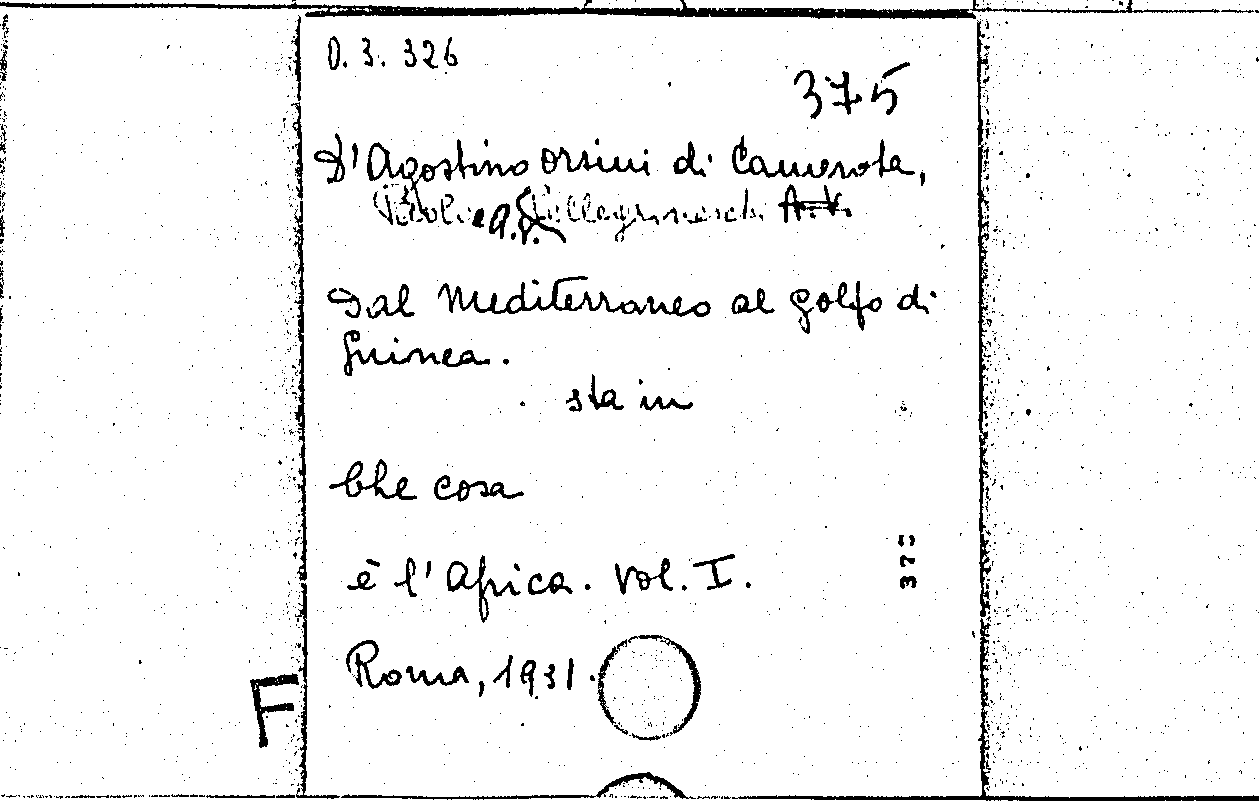 D. 3. 326
375
D'Agostino Orsini di Camerota,
Paolo e A.V. Pellegrineschi A.V.
Dal Mediterraneo al golfo di
Guinea.
sta in
Che cosa
è l'Africa. Vol. I.
375
Roma, 1931.
F